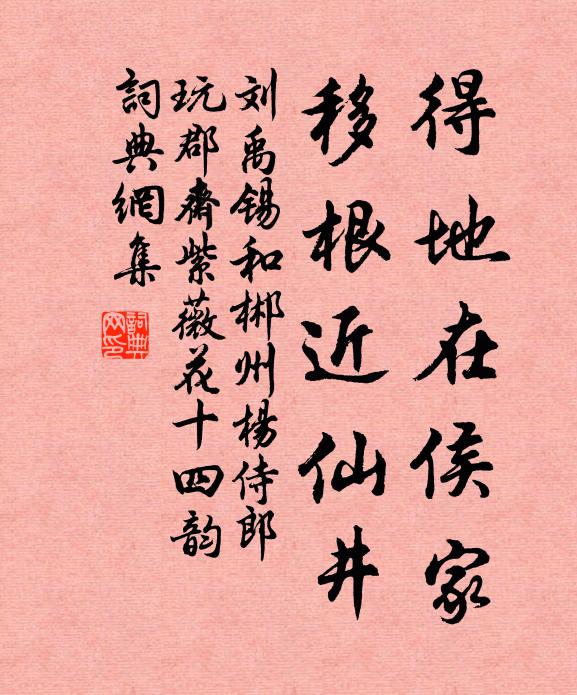 得地在侯家
移根近仙井
刘禹锡和郴州杨侍郎
玩郡斋紫薇花十四韵
詞典網集
詞典
网印